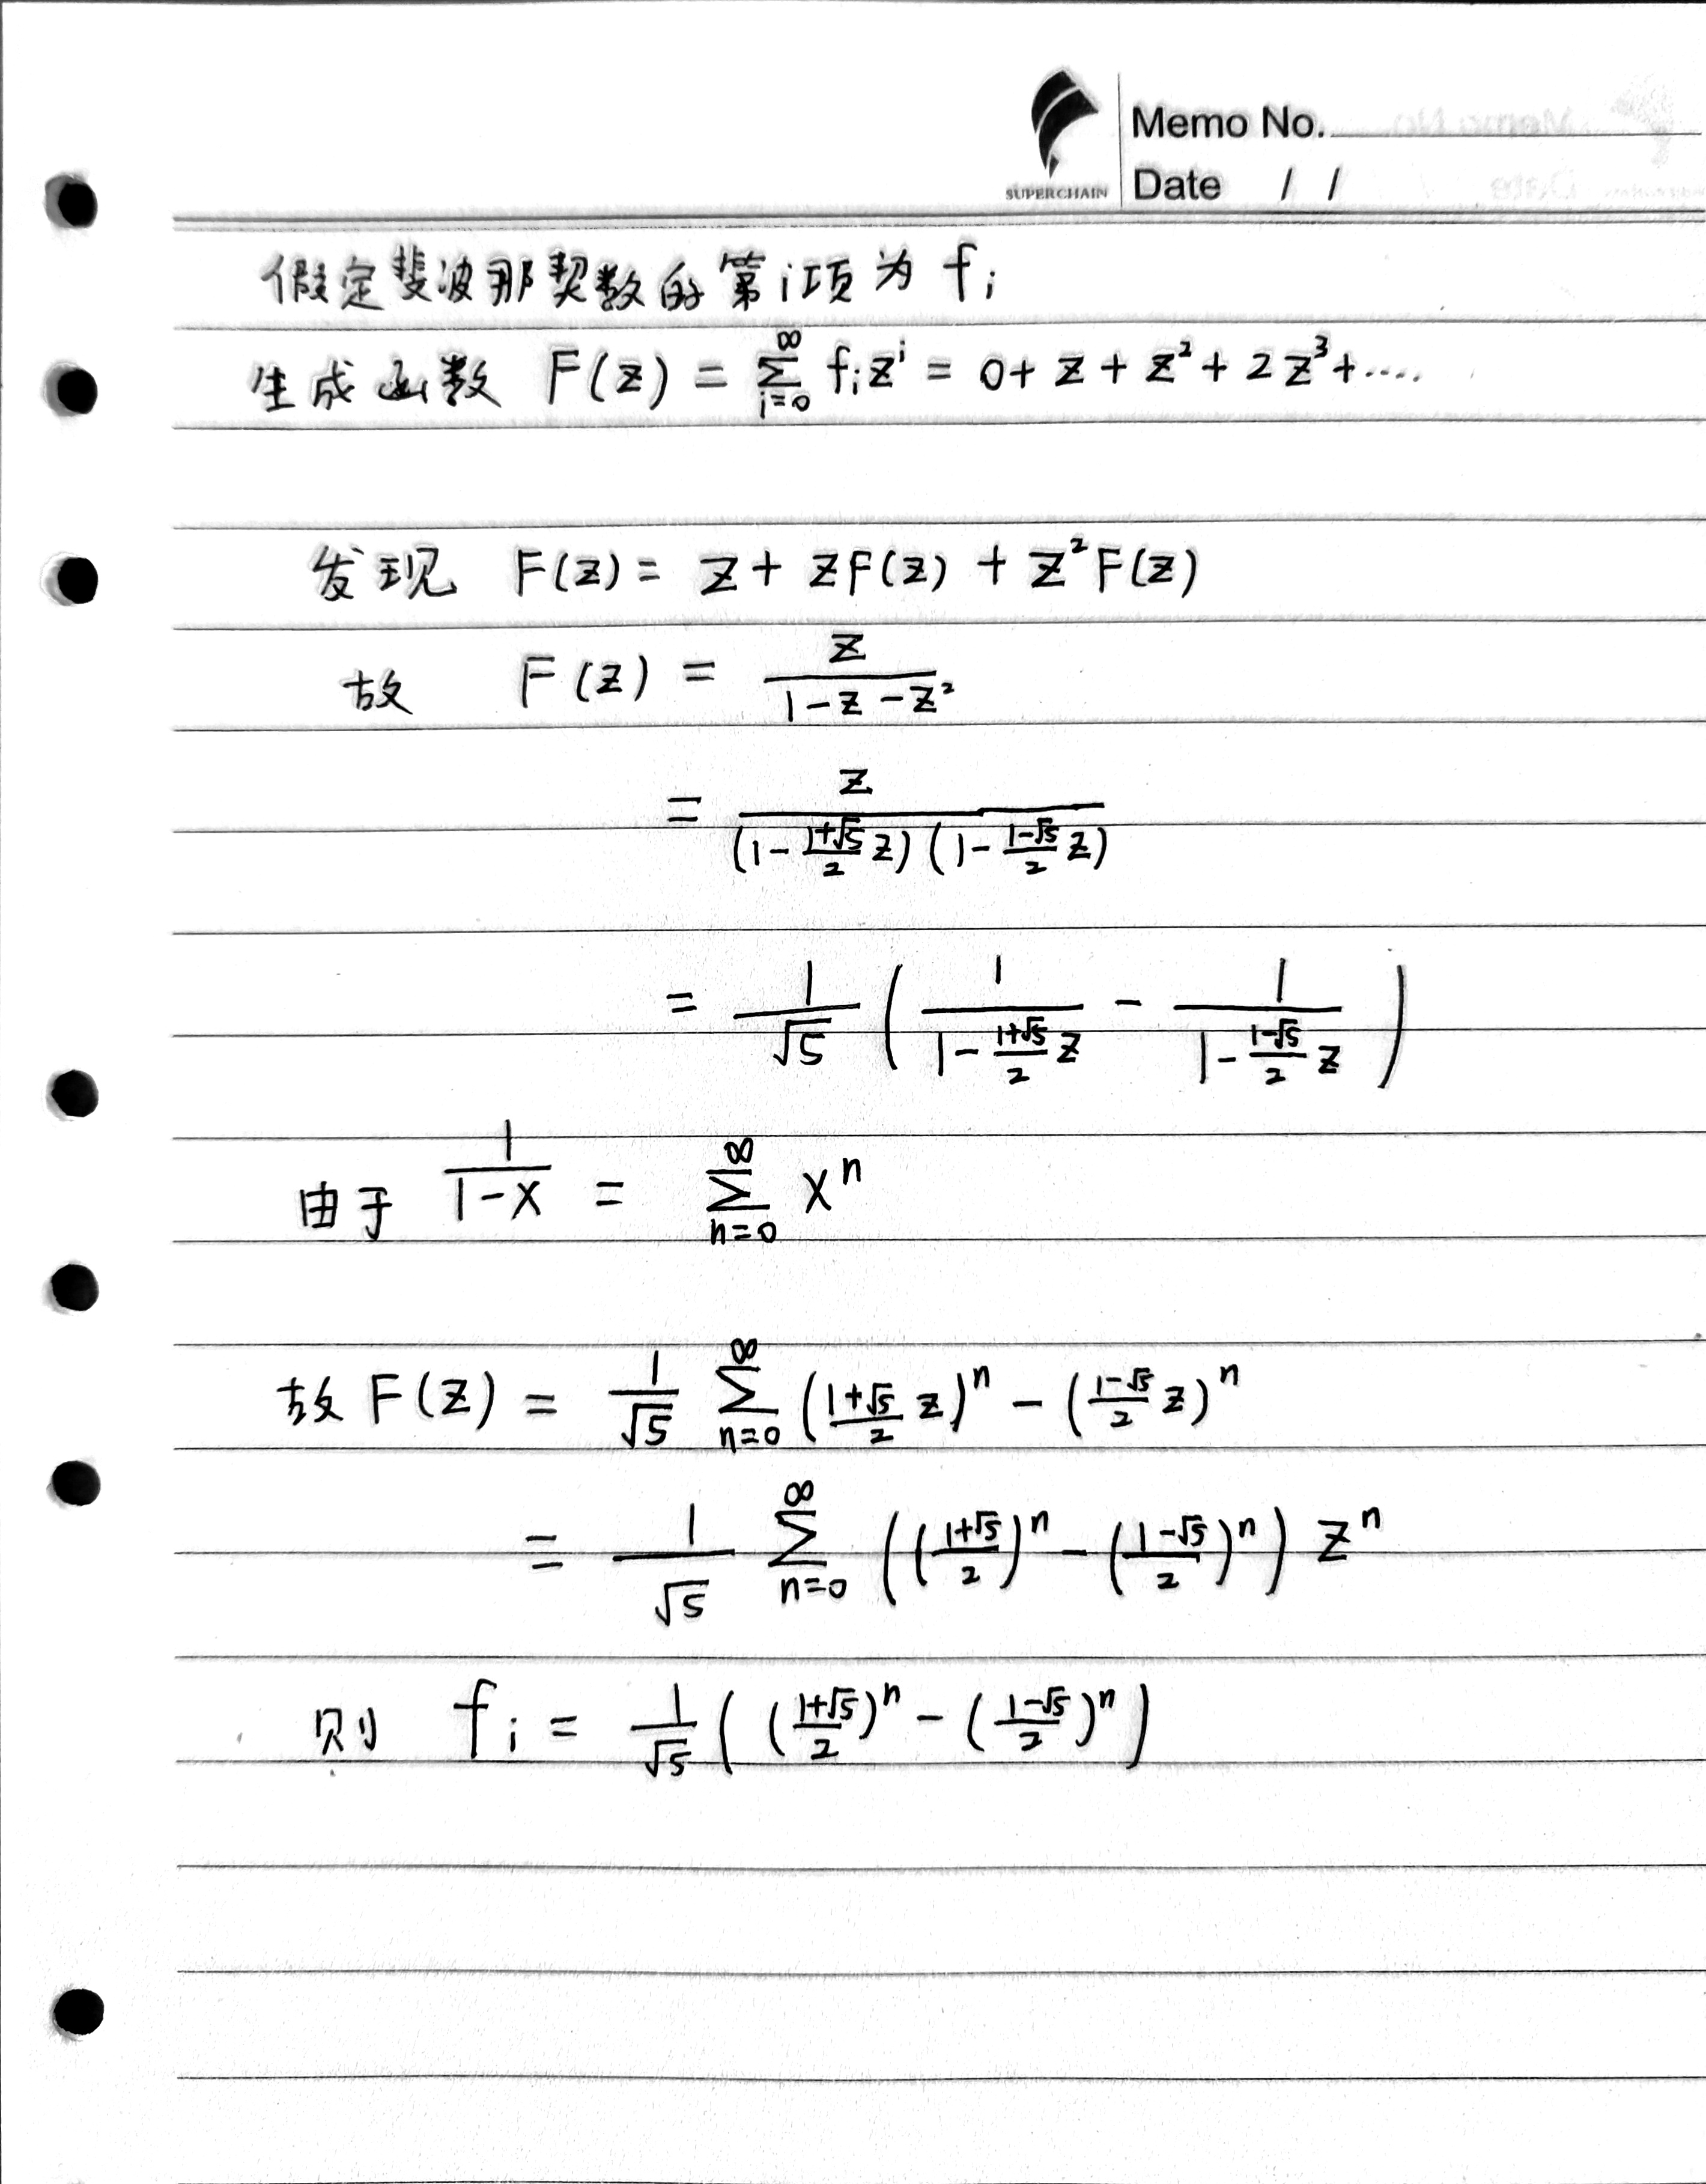 SUPERCHAIN
Memo No.
Date / /
假定斐波那契数的第i项为 fᵢ
生成函数 F(z) = ∑_{i=0}^{∞} fᵢzⁱ = 0 + z + z² + 2z³ + ····
发现 F(z) = z + zF(z) + z²F(z)
故 F(z) = \frac{z}{1-z-z²}
= \frac{z}{(1-\frac{1+√5}{2}z)(1-\frac{1-√5}{2}z)}
= \frac{1}{√5} ( \frac{1}{1-\frac{1+√5}{2}z} - \frac{1}{1-\frac{1-√5}{2}z} )
由于 \frac{1}{1-x} = ∑_{n=0}^{∞} xⁿ
故 F(z) = \frac{1}{√5} ∑_{n=0}^{∞} (\frac{1+√5}{2}z)ⁿ - (\frac{1-√5}{2}z)ⁿ
= \frac{1}{√5} ∑_{n=0}^{∞} ((\frac{1+√5}{2})ⁿ - (\frac{1-√5}{2})ⁿ) zⁿ
则 fᵢ = \frac{1}{√5} ((\frac{1+√5}{2})ⁿ - (\frac{1-√5}{2})ⁿ)